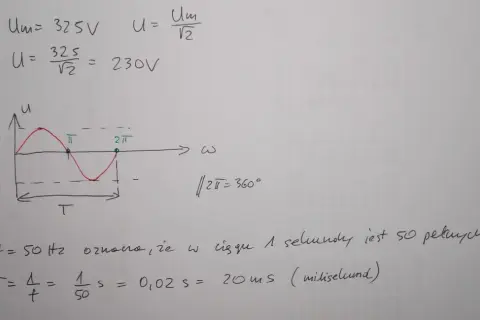 Um = 325V U = Um/√2
U = 325/√2 = 230V
u
π 2π
ω
//2π = 360°
T
= 50 Hz oznacza, że w ciągu 1 sekundy jest 50 pełnych
= 1/f = 1/50 s = 0,02 s = 20 ms (milisekund)